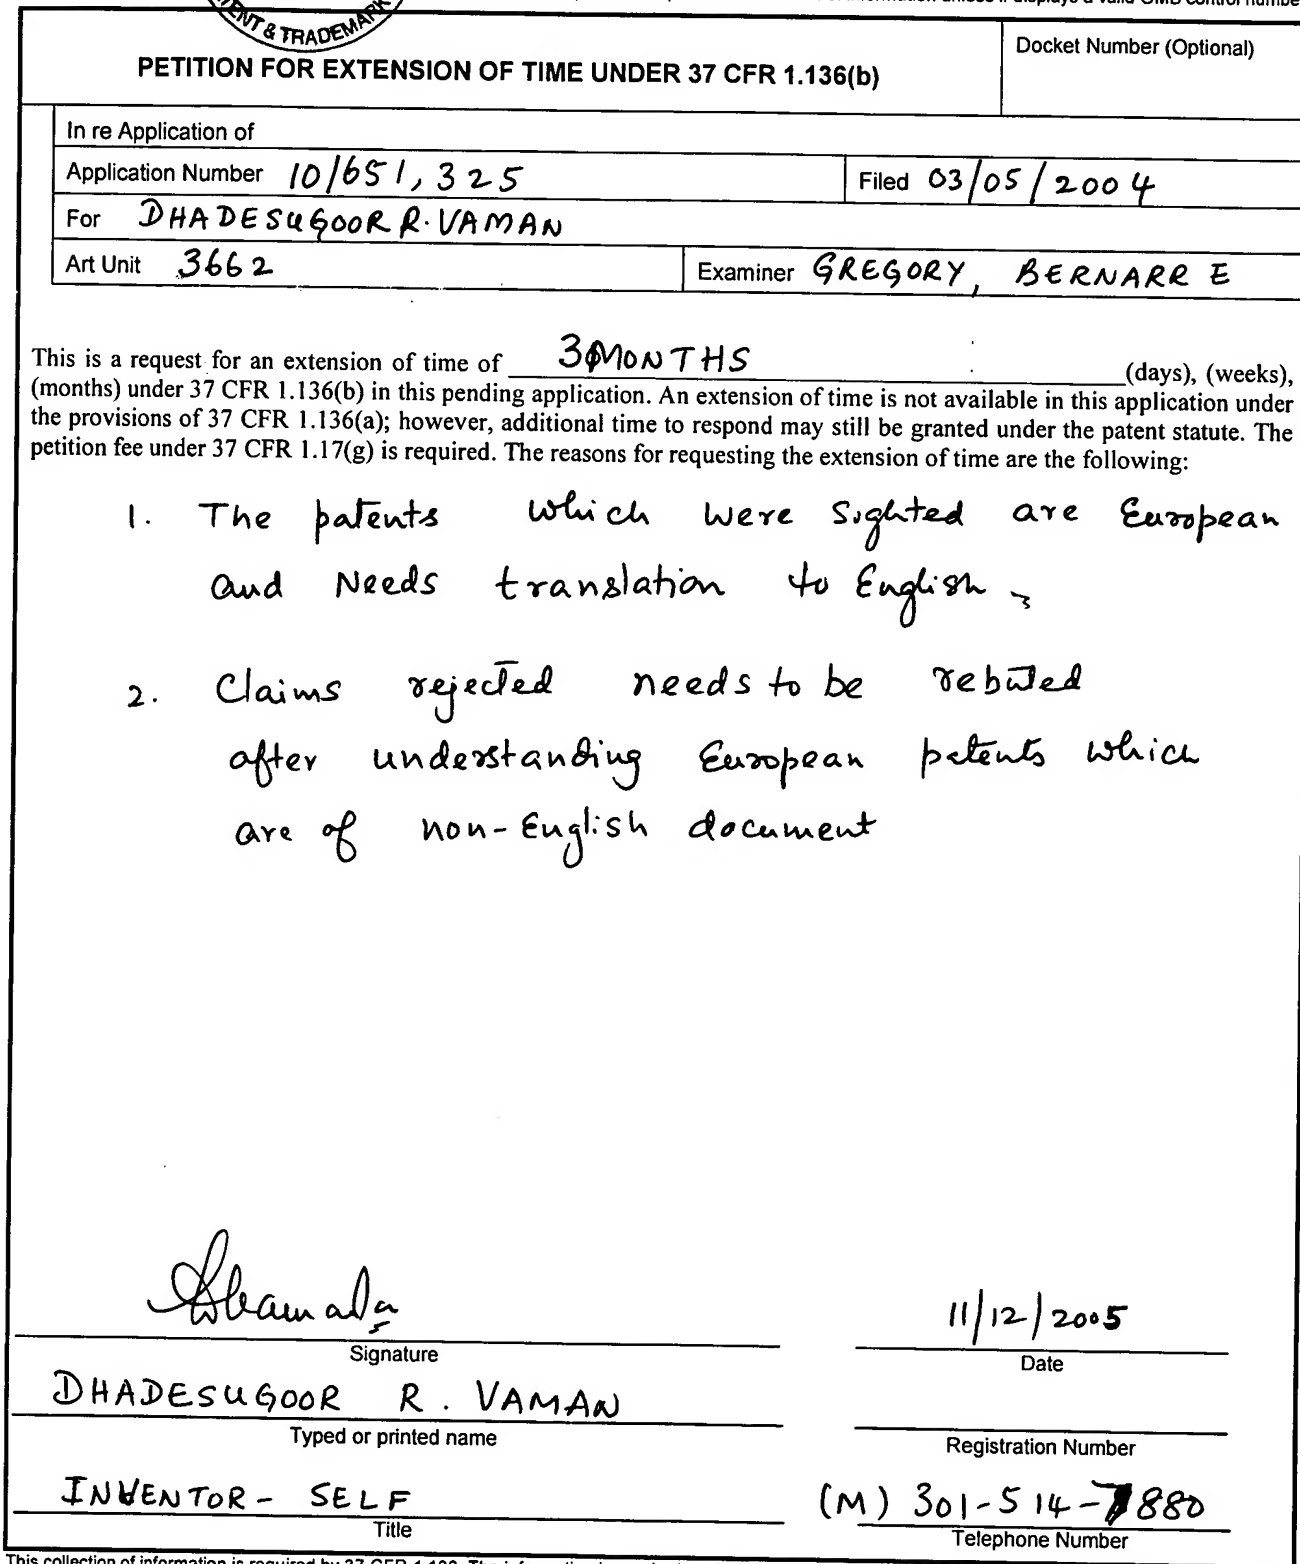 & TRADEMARK
PETITION FOR EXTENSION OF TIME UNDER 37 CFR 1.136(b)
Docket Number (Optional)
In re Application of
Application Number 10/651,325
Filed 03/05/2004
For DHADESUGOOR R. VAMAN
Art Unit 3662
Examiner GREGORY, BERNARR E
This is a request for an extension of time of 3 MONTHS (days), (weeks),
(months) under 37 CFR 1.136(b) in this pending application. An extension of time is not available in this application under
the provisions of 37 CFR 1.136(a); however, additional time to respond may still be granted under the patent statute. The
petition fee under 37 CFR 1.17(g) is required. The reasons for requesting the extension of time are the following:
1. The patents which were sighted are European
and Needs translation to English
2. Claims rejected needs to be rebuted
after understanding European patents which
are of non-English document
11/12/2005
Signature
Date
DHADESUGOOR R. VAMAN
Typed or printed name
Registration Number
INVENTOR - SELF
(M) 301-514-7880
Title
Telephone Number